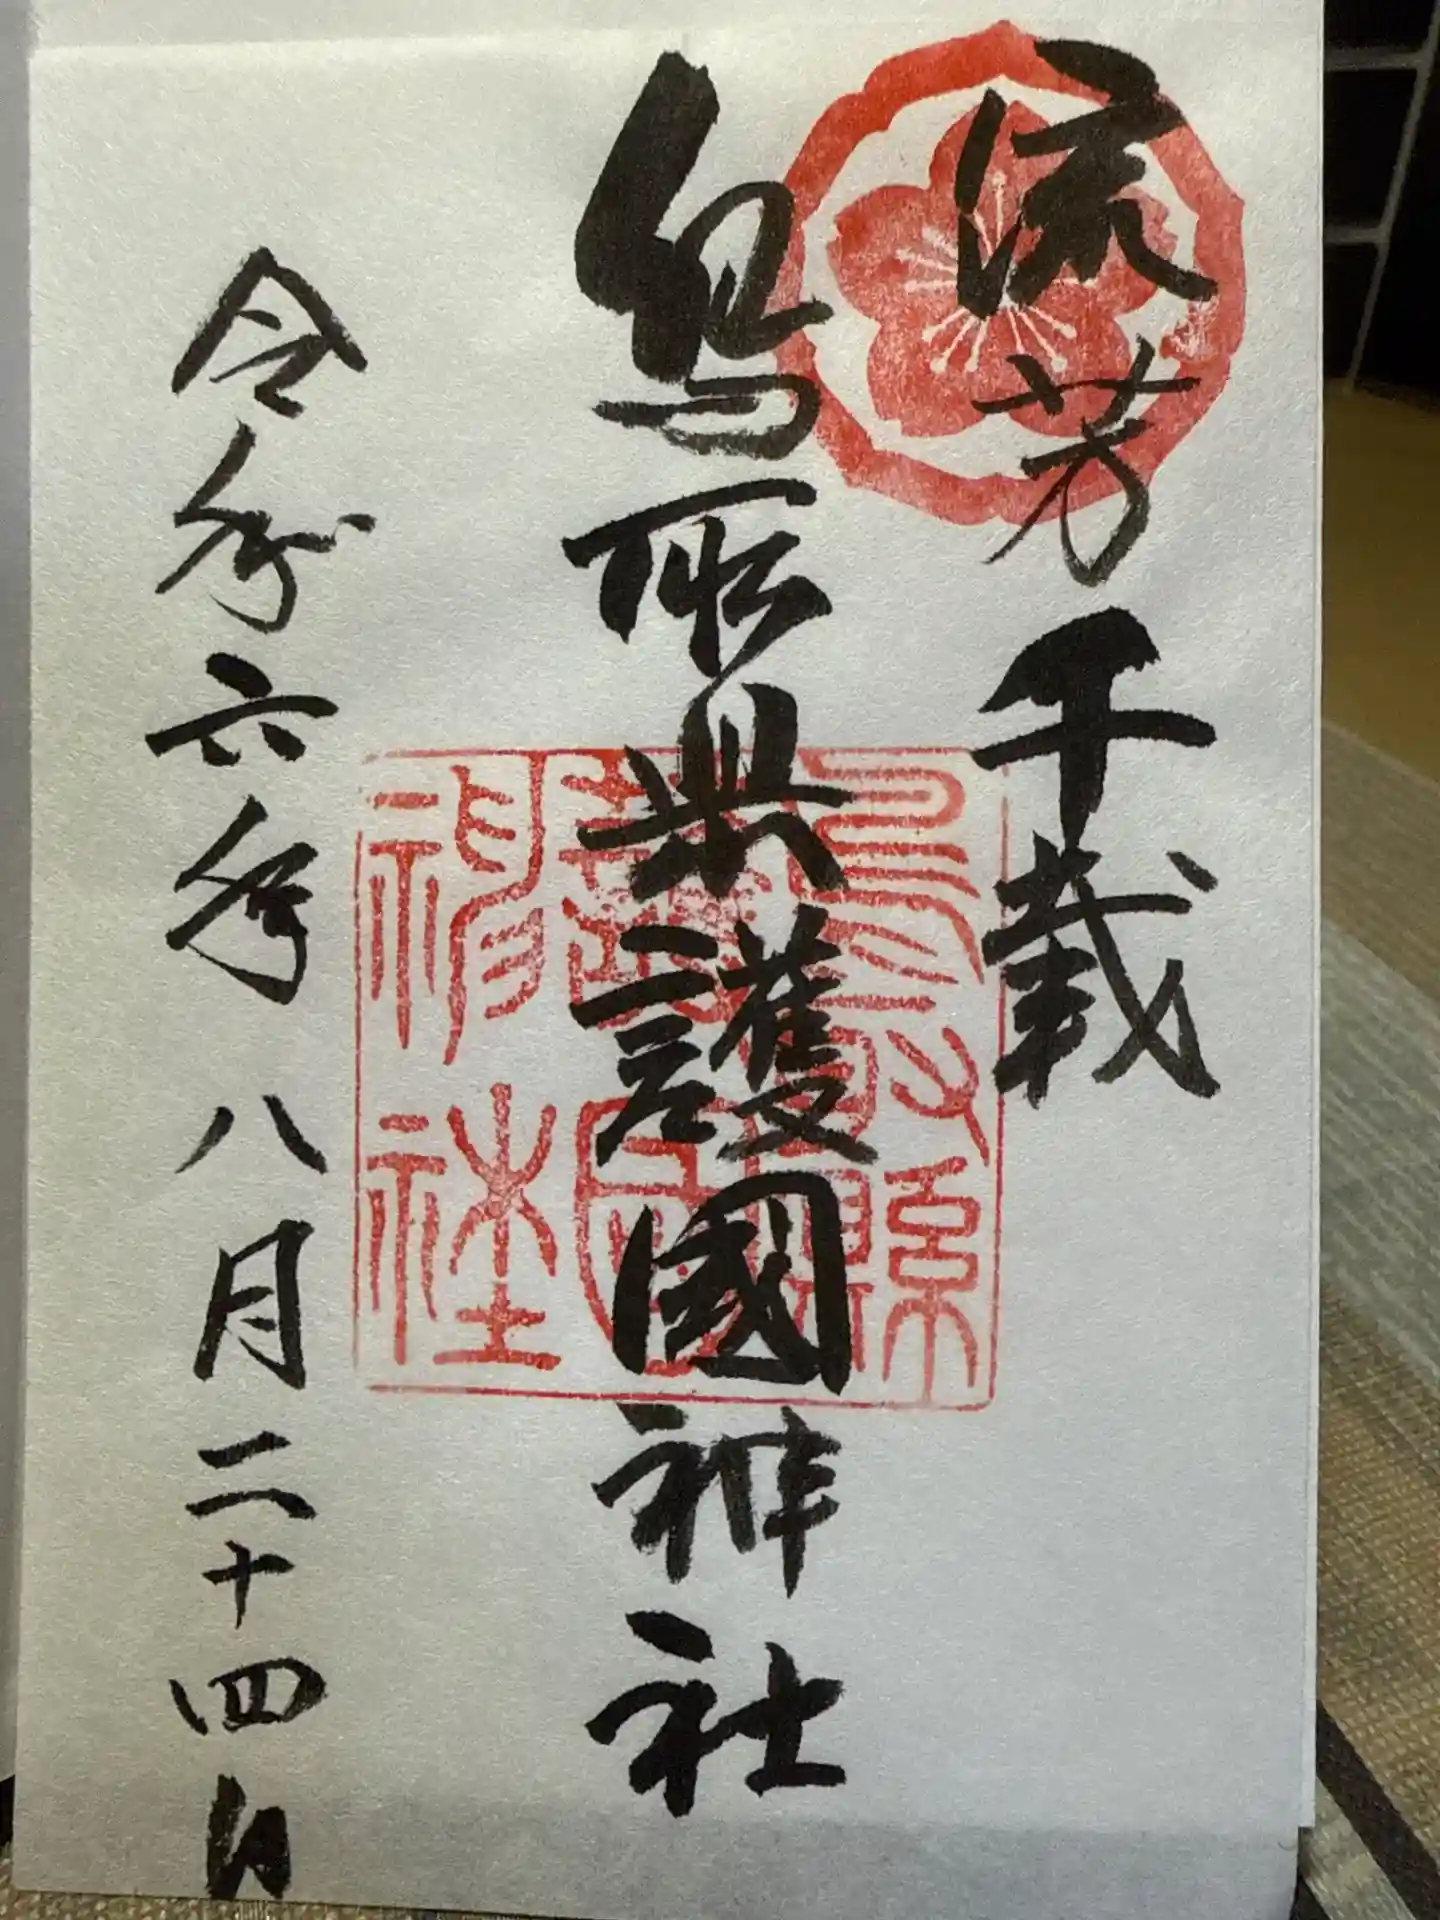 流芳千載
鳥取県護國神社
令和六年八月二十四日
鳥取縣
護國
神社